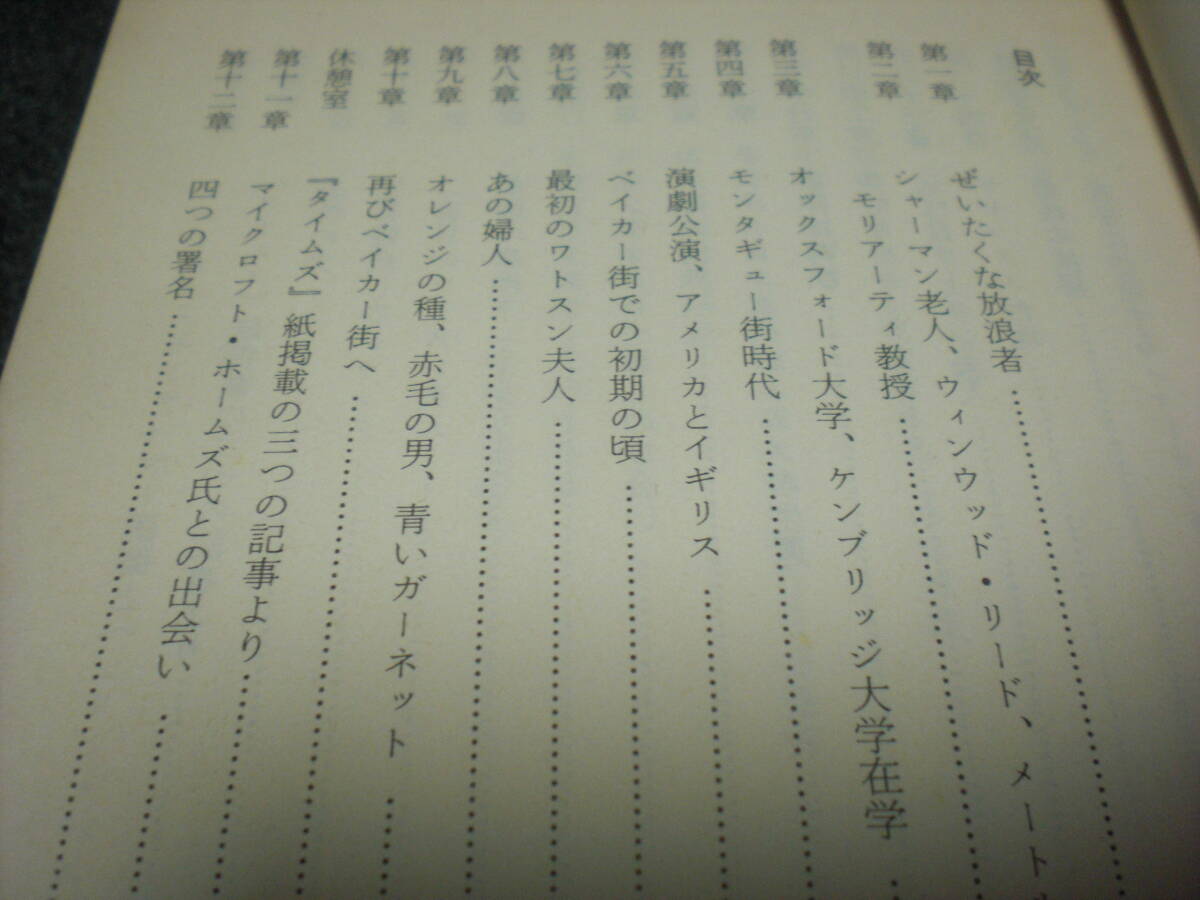 目次
第一章 ぜいたくな放浪者……………………
第二章 シャーマン老人、ウィンウッド・リード、メート
モリアーティ教授……………………
第三章 オックスフォード大学、ケンブリッジ大学在学
第四章 モンタギュー街時代……………………
第五章 演劇公演、アメリカとイギリス……………………
第六章 ベイカー街での初期の頃……………………
第七章 最初のワトスン夫人……………………
第八章 あの婦人……………………
第九章 オレンジの種、赤毛の男、青いガーネット……………………
第十章 再びベイカー街へ……………………
休憩室 『タイムズ』紙掲載の三つの記事より……………………
第十一章 マイクロフト・ホームズ氏との出会い……………………
第十二章 四つの署名……………………